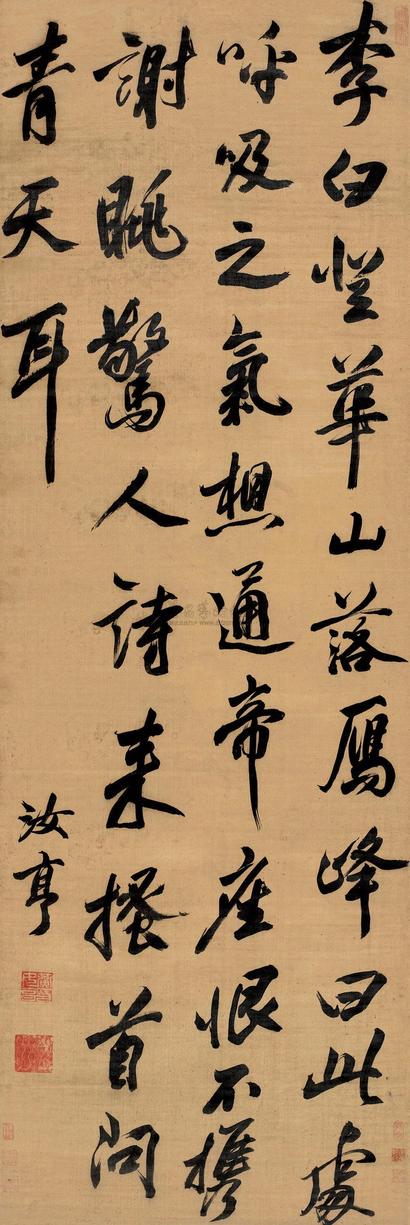 李白登華山落雁峰曰此處
呼吸之氣想通帝座恨不攜
謝眺驚人詩来搔首問
青天耳
汝亨